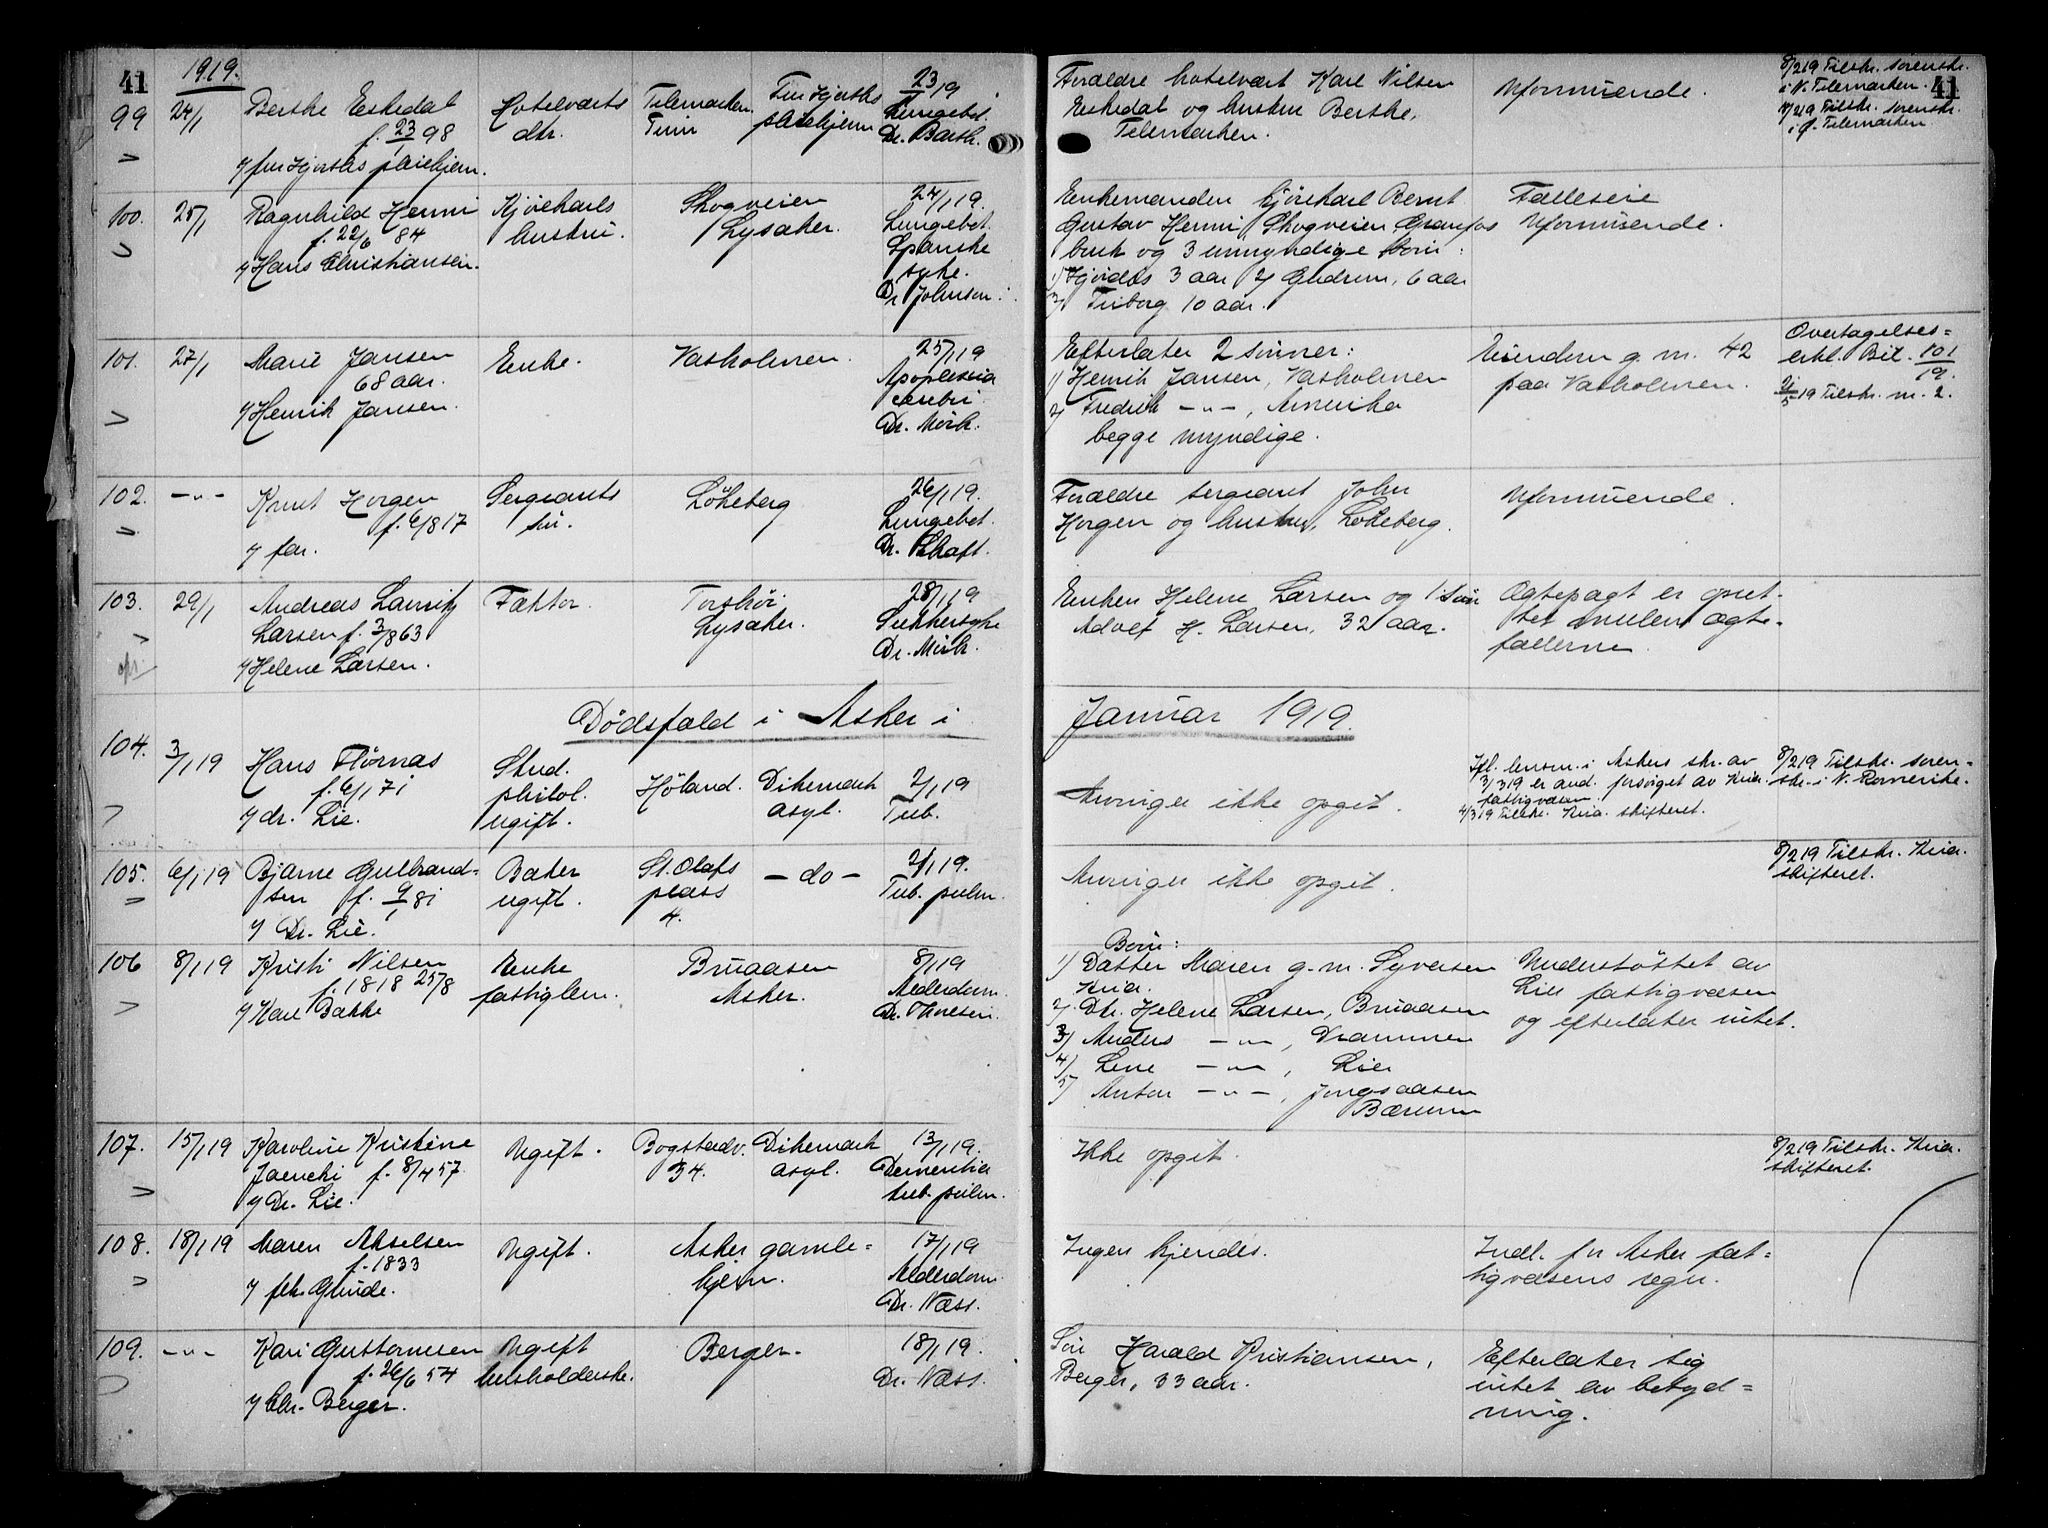 41
1919.
99
24/1
Berthe Eskedal
f. 23/1 98
Hotelværts
dtr.
Telemarken
Tinn
Fru Hjorths
pleiehjem
23/1 19
Lungebet.
Dr. Barth.
Forældre hotelvært Karl Nilsen
Eskedal og hustru Berthe,
Telemarken.
Uformuende.
8/2 19 Tilskr. sorenskr.
i N. Telemarken.
41
Tilskr. sorenskr.
i Ø. Telemarken
v/ fru Hjorths pleiehjem.
100.
25/1
Ragnhild Henni
f. 22/6 84
v/ Hans Christiansen.
Kjørekarls
hustru.
Skogveien
Lysaker.
24/1 19.
Lungebet.
Spanske
syke.
Dr. Johnsen.
Enkemanden kjørekarl Bernt
Gustav Henni Skogveien, Granfos
bruk og 3 umyndige børn:
1) Hjørdis 3 aar 2) Gudrun, 6 aar
3) 10 aar.
Fælleseie
Uformuende.
101.
27/1
Marie Jansen
68 aar.
v/ Henrik Jansen.
Enke.
Vasholmen.
25/1 19
Apoplexia
cerebri.
Dr. Mørk.
Efterlater 2 sønner:
1) Henrik Jansen, Vasholmen
2) Fredrik -"-, Amerika
begge myndige.
Eiendom g. nr. 42
paa Vasholmen.
Overtagelses-
erkl. Bil. 101/19.
2/5 19 Tilskr. nr. 2.
102.
-"-
Knut Horgen
f. 6/8 17
v/ far.
Sergeants
søn.
Løkeberg
26/1 19.
Lungebet.
Dr. Schaft.
Forældre sergeant John
Horgen og hustru, Løkeberg.
Uformuende.
103.
29/1
Andreas Lauritz
Larsen f. 3/8 63
v/ Helene Larsen.
Faktor.
Torshør
Lysaker.
28/1 19
Sukkersyke
Dr. Mørk.
Enken Helene Larsen og 1 søn
Adolf H. Larsen, 32 aar.
Ægtepagt er opret-
tet mellem ægte-
fællerne.
Dødsfald i Asker i
Januar 1919.
104.
3/1 19
Hans Flörnas
f. 6/1 71
v/ dr. Lie.
Stud.
philol.
ugift.
Höland.
Dikemark
asyl.
2/1 19
Tub.
Arvinger ikke opgit.
Ifl. lensm. i Askers skr. av
3/3 19 er avd. forsørget av Kria.
fattigvæsen
4/3 19 Tilskr. Kria. skifteret.
8/2 19 Tilskr. soren-
skr. i N. Romerike.
105.
6/1 19
Bjarne Gulbrand-
sen f. 9/1 81
v/ Dr. Lie.
Baker
ugift.
St. Olafs
plass
4.
-do-
2/1 19.
Tub. pulm.
Arvinger ikke opgit.
8/2 19 Tilskr. Kria.
skifteret.
106
8/1 19
Kristi Nilsen
f. 1818 25/8
v/ Karl Bakke
Enke
fattiglem.
Bruaasen
Asker.
8/1 19
Alderdom.
Dr. Thoresen.
Børn:
1) Datter Maren g. m. Syversen
Kria.
2) Dtr. Helene Larsen, Bruaasen
3) Anders -"-, Drammen
4) Lene -"-, Lier
5) Anton -"-, Jongsaasen
Bærum
Understøttet av
Lier fattigvæsen
og efterlater intet.
107.
15/1 19
Karoline Kristine
Jaencki f. 8/4 57.
v/ Dr. Lie.
Ugift.
Bogstadv.
34.
Dikemark
asyl.
13/1 19.
Dementia
tub. pulm.
Ikke opgit.
8/2 19 Tilskr. Kria.
skifteret.
108.
18/1 19
Maren Akselsen
f. 1833
v/ frk. Grinde.
Ugift.
Asker gamle-
hjem.
17/1 19
Alderdom
Dr. Næss.
Ingen kjendes.
Indl. for Asker fat-
tigvæsens regn.
109.
-"-
Kari Guttormsen
f. 26/6 54
v/ Chr. Berger.
Ugift
husholderske.
Berger.
18/1 19.
Dr. Næss.
Søn Harald Kristiansen,
Berger, 33 aar.
Efterlater sig
intet av betyd-
ning.